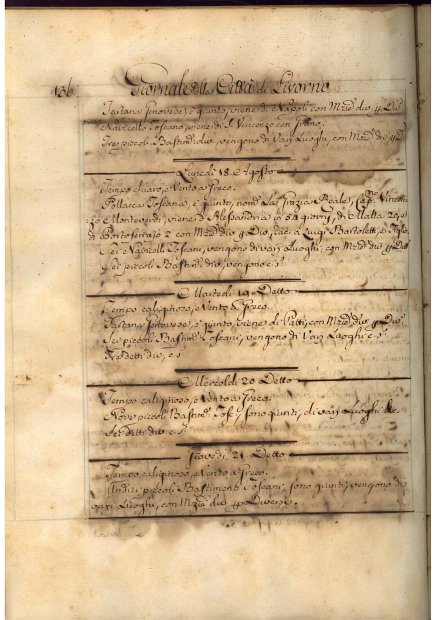 136 Giornale della Città di Livorno
Tartana Genovese, è giunto, viene di Napoli con Merc. div. p. Div.
Navicello Toscano, viene di S. Vincenzo con grano.
Tre piccoli Bastim. div. vengono di varj Luoghi, con Merc. div. p. D.
Lunedì 18. Agosto
Tempo chiaro, e Vento a Greco.
Polacca Toscano, è giunto, nom. La Grazia Reale, Cap. Vincen-
zo Montever, viene d'Alessandria in 58 giorni, di Malta 24, e
di Porto ferrajo 2 con Merc. div. p. Div., a Luigi Bartolotti, e Figlo.
Sei Navicelli Toscani, vengono di varj Luoghi, con Merc. div. p. Div.
Sei piccoli Bastim. div., vengono e s.
Martedì 19 Detto
Tempo caliginoso, e Vento a Greco.
Tartana Genovese, è giunto, viene di Patti, con Merc. div. p. Div.
Sei piccoli Bastim. Toscani, vengono di Varj Luoghi e s.
detti div., e s.
Mercoldì 20 Detto
Tempo caliginoso, e Vento a Greco.
Nove piccoli Bastim. Tos., sono giunti, di varj Luoghi
Sei detti div. e s.
Giovedì 21 Detto
Tempo caliginoso, e Vento a Greco.
Undici piccoli Bastimenti Toscani, sono giunti, vengono di
varj Luoghi, con Merc. div. p. Diversi.